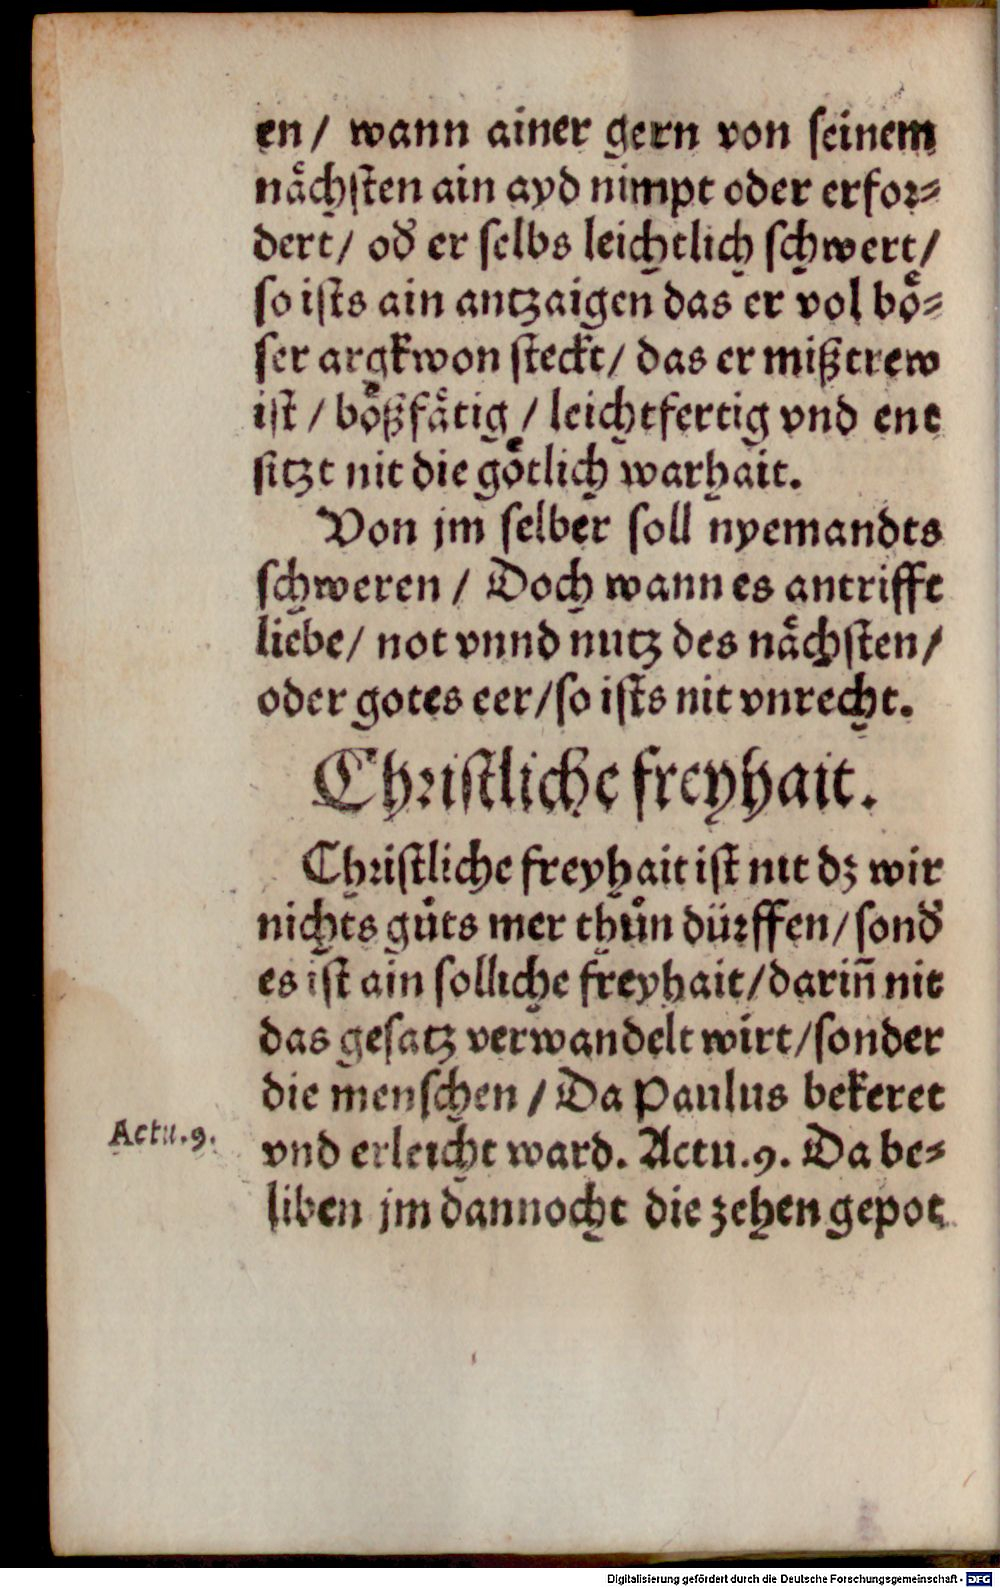 en/ wann ainer gern von seinem
nåchsten ain ayd nimpt oder erfor⸗
dert/ od̕ er selbs leichtlich schwert/
so ists ain antzaigen das er vol bo̊⸗
ser argkwon steckt/ das er mißtrew
ist / bo̊ßfåtig / leichtfertig vnd ent
sitzt nit die go̊tlich warhait.
Von jm selber soll nyemandts
schweren / Doch wann es antrifft
liebe/ not vnnd nutz des nåchsten/
oder gotes eer/so ists nit vnrecht.
Christliche freyhait.
Christliche freyhait ist nit dz wir
nichts gůts mer thůn dürffen/sond̕
es ist ain solliche freyhait/darin̄ nit
das gesatz verwandelt wirt/sonder
die menschen / Da Paulus bekeret
Actu.9.
vnd erleicht ward. Actu.9. Da be⸗
liben jm dannocht die zehen gepot
Digitalisierung gefördert durch die Deutsche Forschungsgemeinschaft - DFG